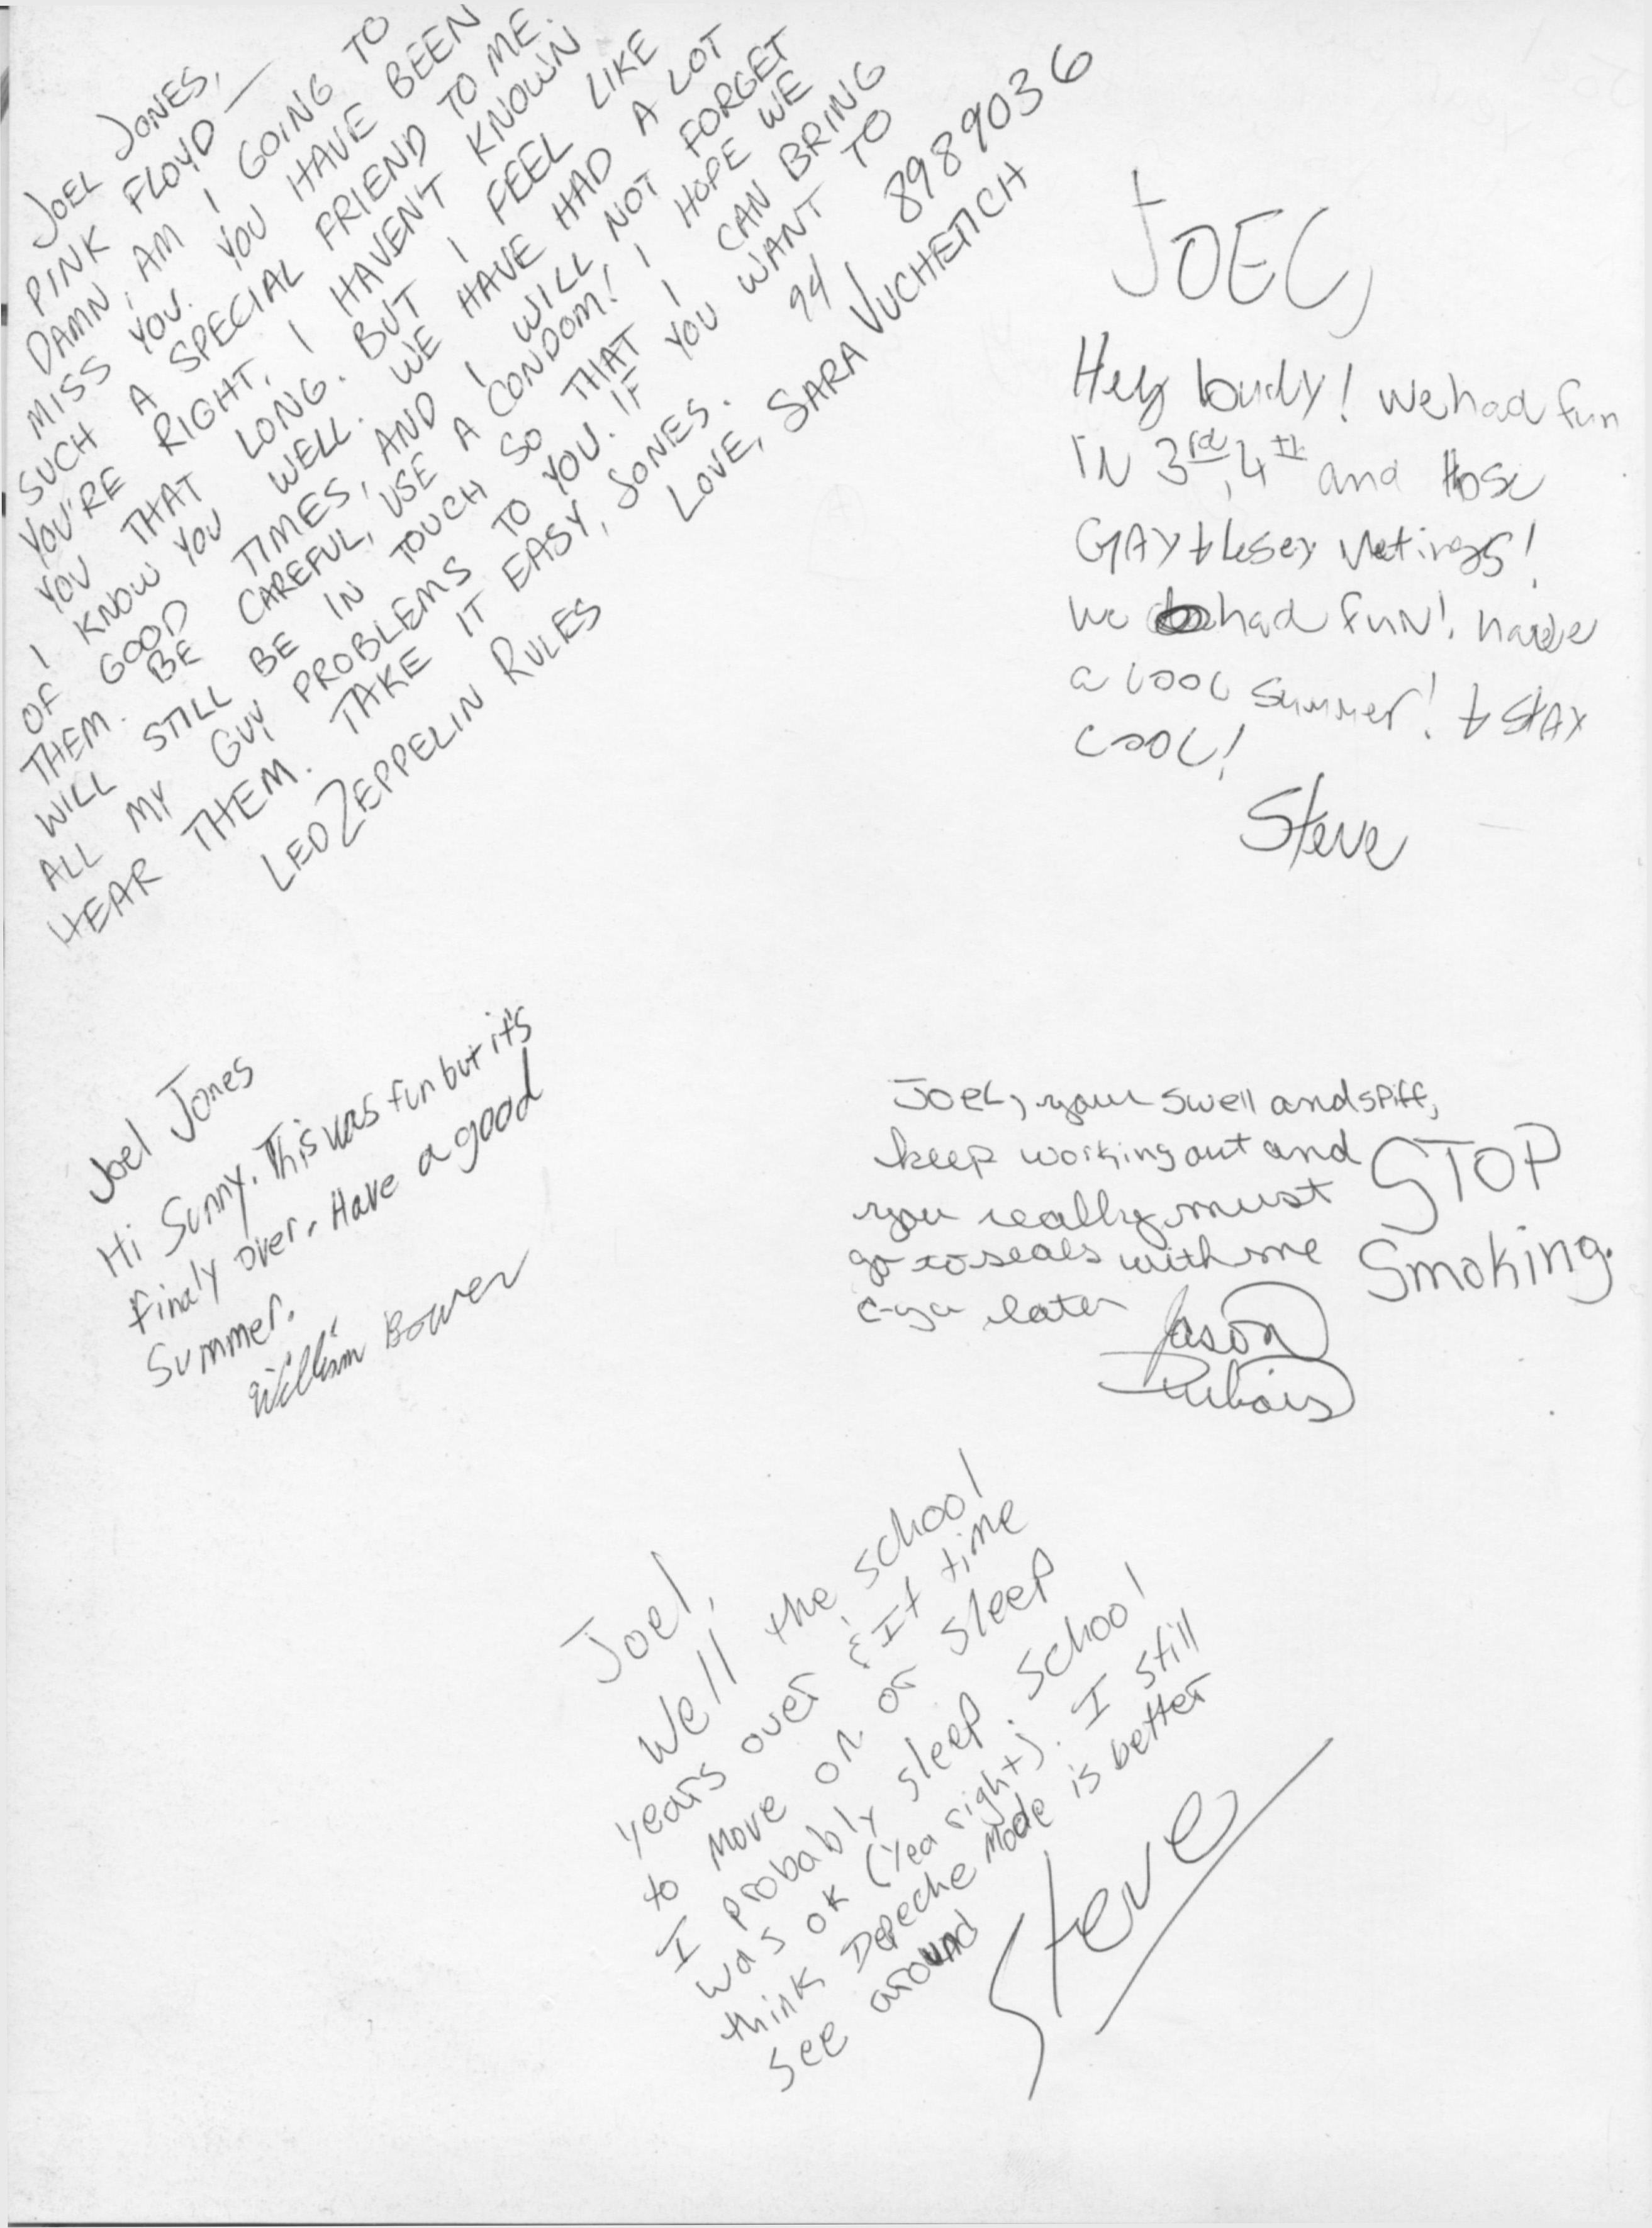 JOEL JONES,
PINK FLOYD—
DAMN, AM I GOING TO
MISS YOU. YOU HAVE BEEN
SUCH A SPECIAL FRIEND TO ME.
YOU'RE RIGHT, I HAVEN'T KNOWN
YOU THAT LONG. BUT I FEEL LIKE
I KNOW YOU WELL. WE HAVE HAD A LOT
OF GOOD TIMES, AND I WILL NOT FORGET
THEM. BE CAREFUL, USE A CONDOM! I HOPE WE
WILL STILL BE IN TOUCH SO THAT I CAN BRING
ALL MY GUY PROBLEMS TO YOU. IF YOU WANT TO
HEAR THEM. TAKE IT EASY, JONES. 94 8989036
LOVE, SARA VUCHETICH
LED ZEPPELIN RULES
JOEL,
Hey budy! We had fun
IN 3rd, 4th and those
GAY +
We had fun! have
a cool summer! + StAY
cool!
Steve
Joel Jones
Hi Sunny. This was fun but it's
finaly over. Have a good
Summer.
William Bower
Joel, your swell and spiff,
keep working out and
you really must
go to seals with me
c-ya later
Jason
Dubois
STOP
Smoking.
Joel,
Well the school
years over & It time
to move on or sleep
I probably sleep. School
was ok (Yea right). I still
think Depeche Mode is better
See around
Steve